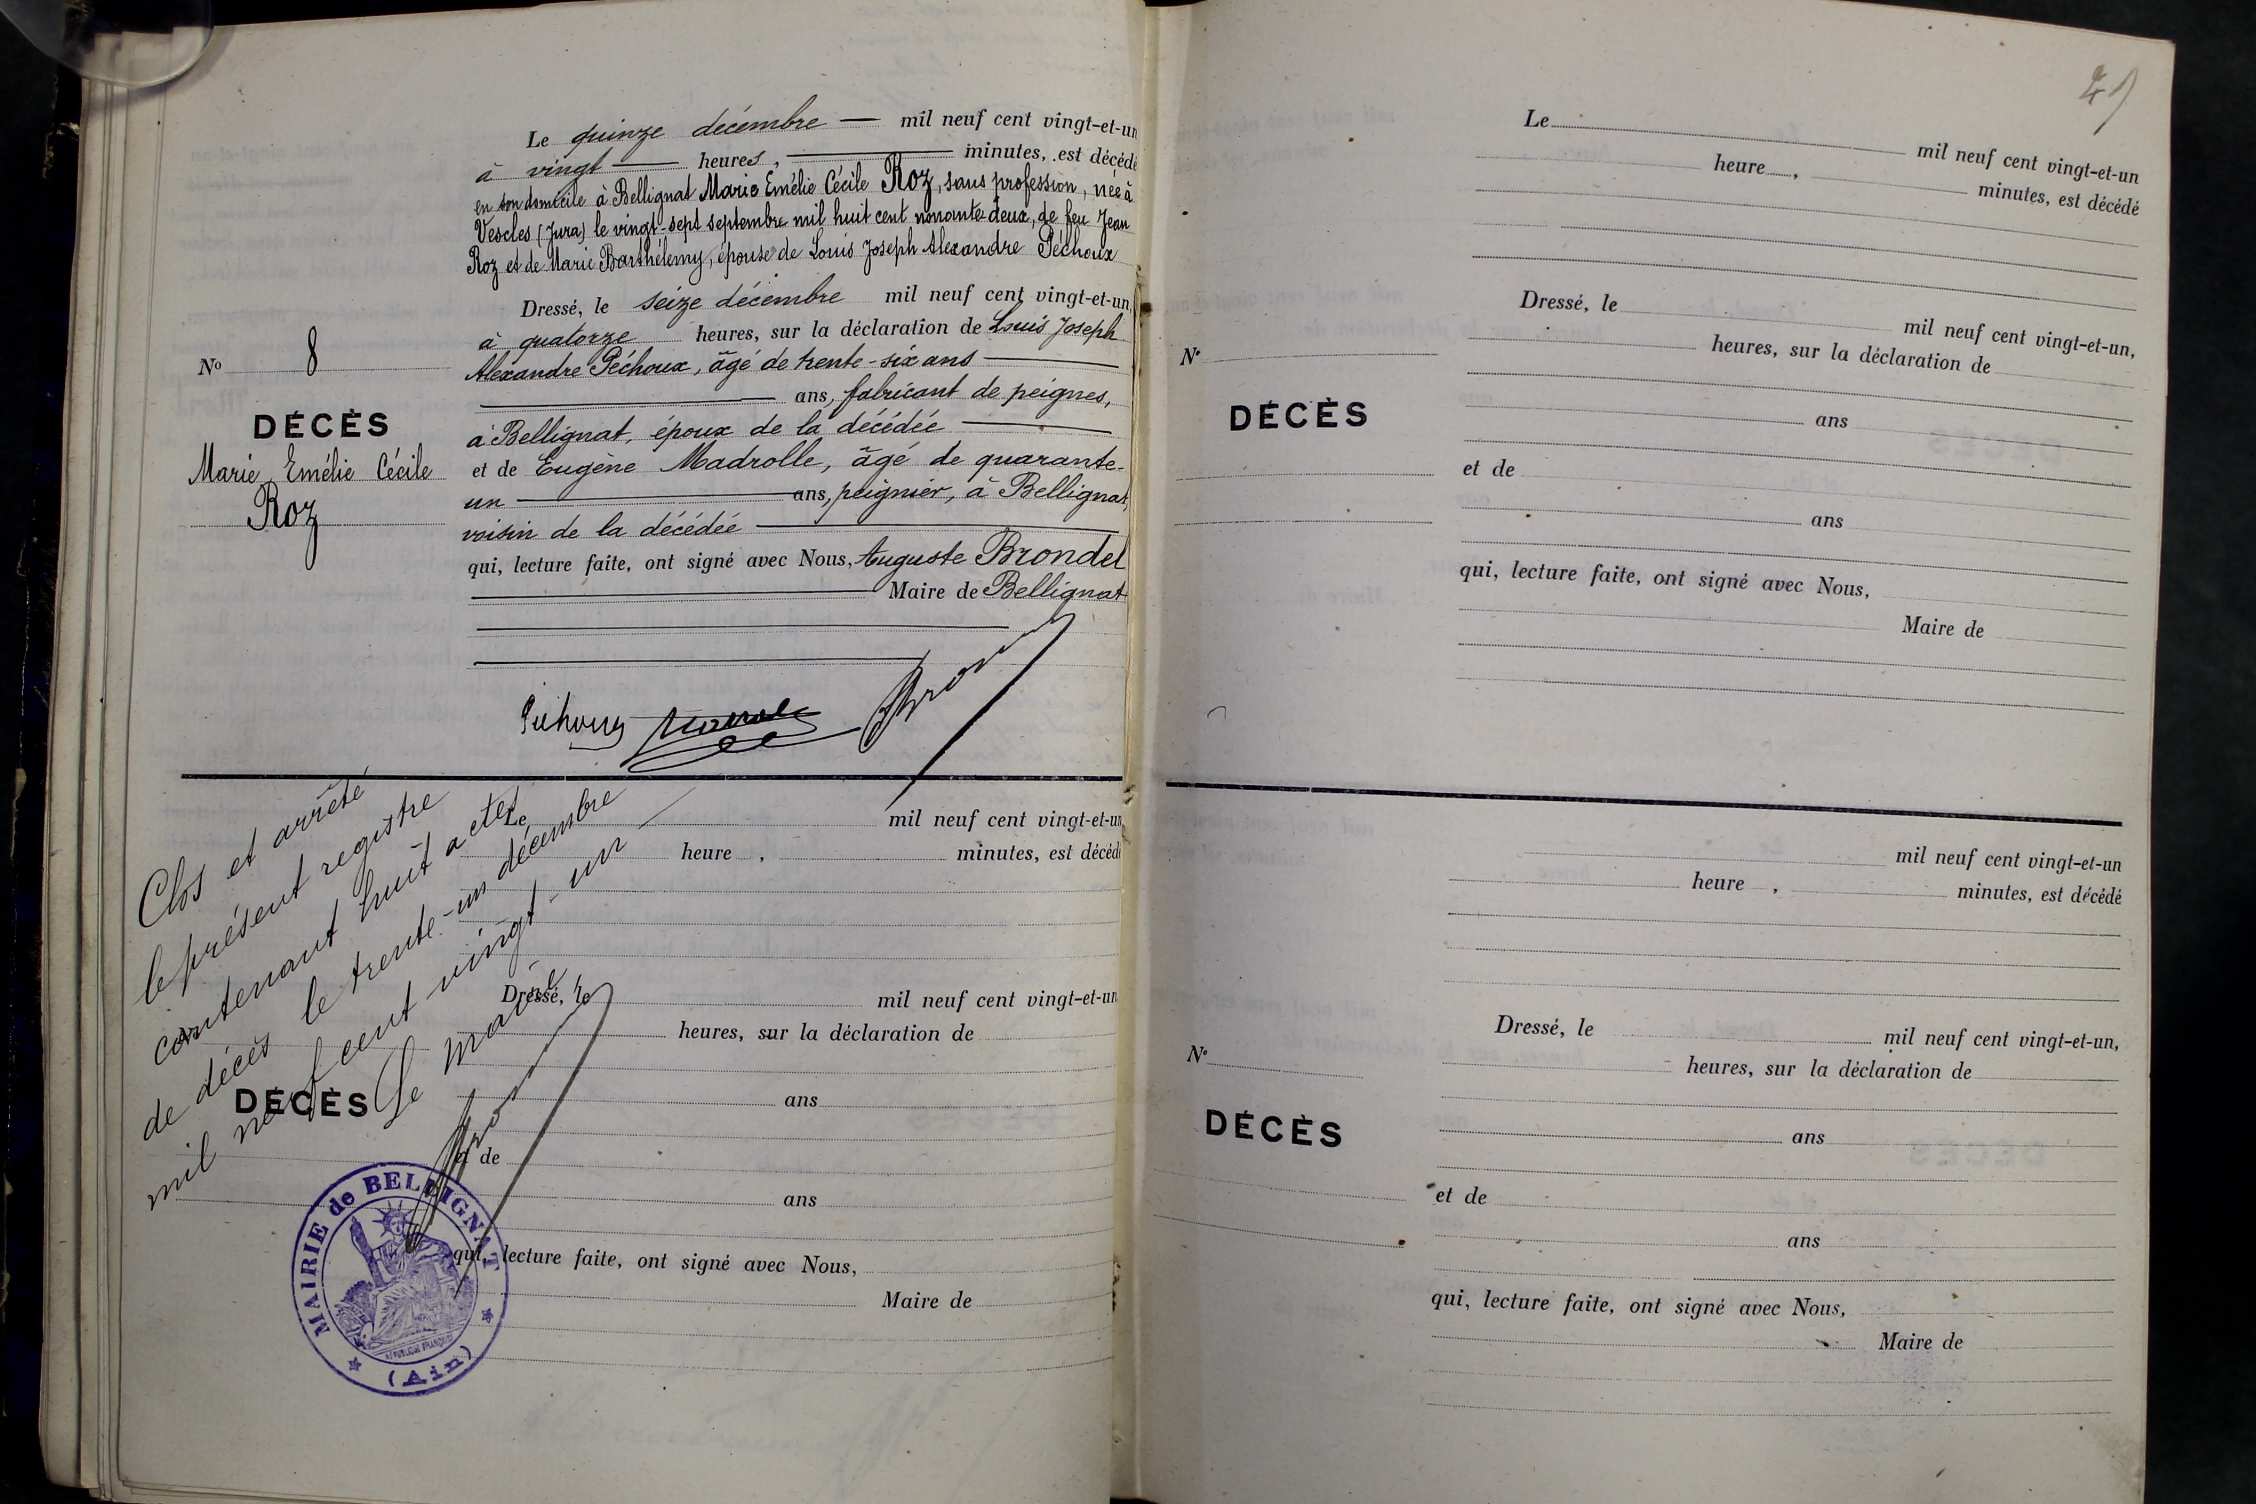 Le quinze décembre — mil neuf cent vingt-et-un
à vingt — heures, — minutes, est décédé
en son domicile à Bellignat Marie Emélie Cécile Roz, sans profession, née à
Vescles (Jura) le vingt-sept septembre mil huit cent nonante-deux, de feu Jean
Roz et de Marie Barthélemy, épouse de Louis Joseph Alexandre Péchoux
Dressé, le seize décembre mil neuf cent vingt-et-un,
à quatorze heures, sur la déclaration de Louis Joseph
Alexandre Péchoux, âgé de trente-six ans —
— ans, fabricant de peignes,
à Bellignat, époux de la décédée —
et de Eugène Madrolle, âgé de quarante-
un — ans, peignier, à Bellignat,
voisin de la décédée —
qui, lecture faite, ont signé avec Nous, Auguste Brondel
— Maire de Bellignat
No 8
DÉCÈS
Marie Emélie Cécile
Roz
Péchoux
Clos et arrêté
le présent registre
contenant huit actes
de décès le trente-un décembre
mil neuf cent vingt-un —
Le maire
Le mil neuf cent vingt-et-un
heure , minutes, est décédé
Dressé, le mil neuf cent vingt-et-un
heures, sur la déclaration de
ans
DÉCÈS
et de
ans
qui, lecture faite, ont signé avec Nous,
Maire de
MAIRIE de BELLIGNAT
RÉPUBLIQUE FRANÇAISE
(Ain)
Le mil neuf cent vingt-et-un
heure , minutes, est décédé
Dressé, le mil neuf cent vingt-et-un,
heures, sur la déclaration de
No
DÉCÈS
ans
et de
ans
qui, lecture faite, ont signé avec Nous,
Maire de
mil neuf cent vingt-et-un
heure , minutes, est décédé
Dressé, le mil neuf cent vingt-et-un,
heures, sur la déclaration de
No
DÉCÈS
ans
et de
ans
qui, lecture faite, ont signé avec Nous,
Maire de